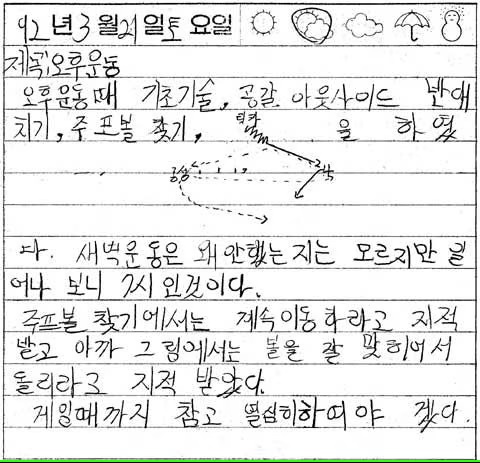 92년 3월 21일 토요일
제목:오후운동
오후운동때 기초기술, 공갈, 아웃사이드 반대
치기, 주프볼 찾기, 을 하였
다. 새벽운동은 왜안했는지는 모르지만 일
어나 보니 7시인것이다.
주프볼 찾기에서는 계속이동하라고 지적
받고 아까 그림에서는 볼을 잘 맞히어서
돌리라고 지적 받았다.
게임때까지 참고 열심히하여야 겠다.